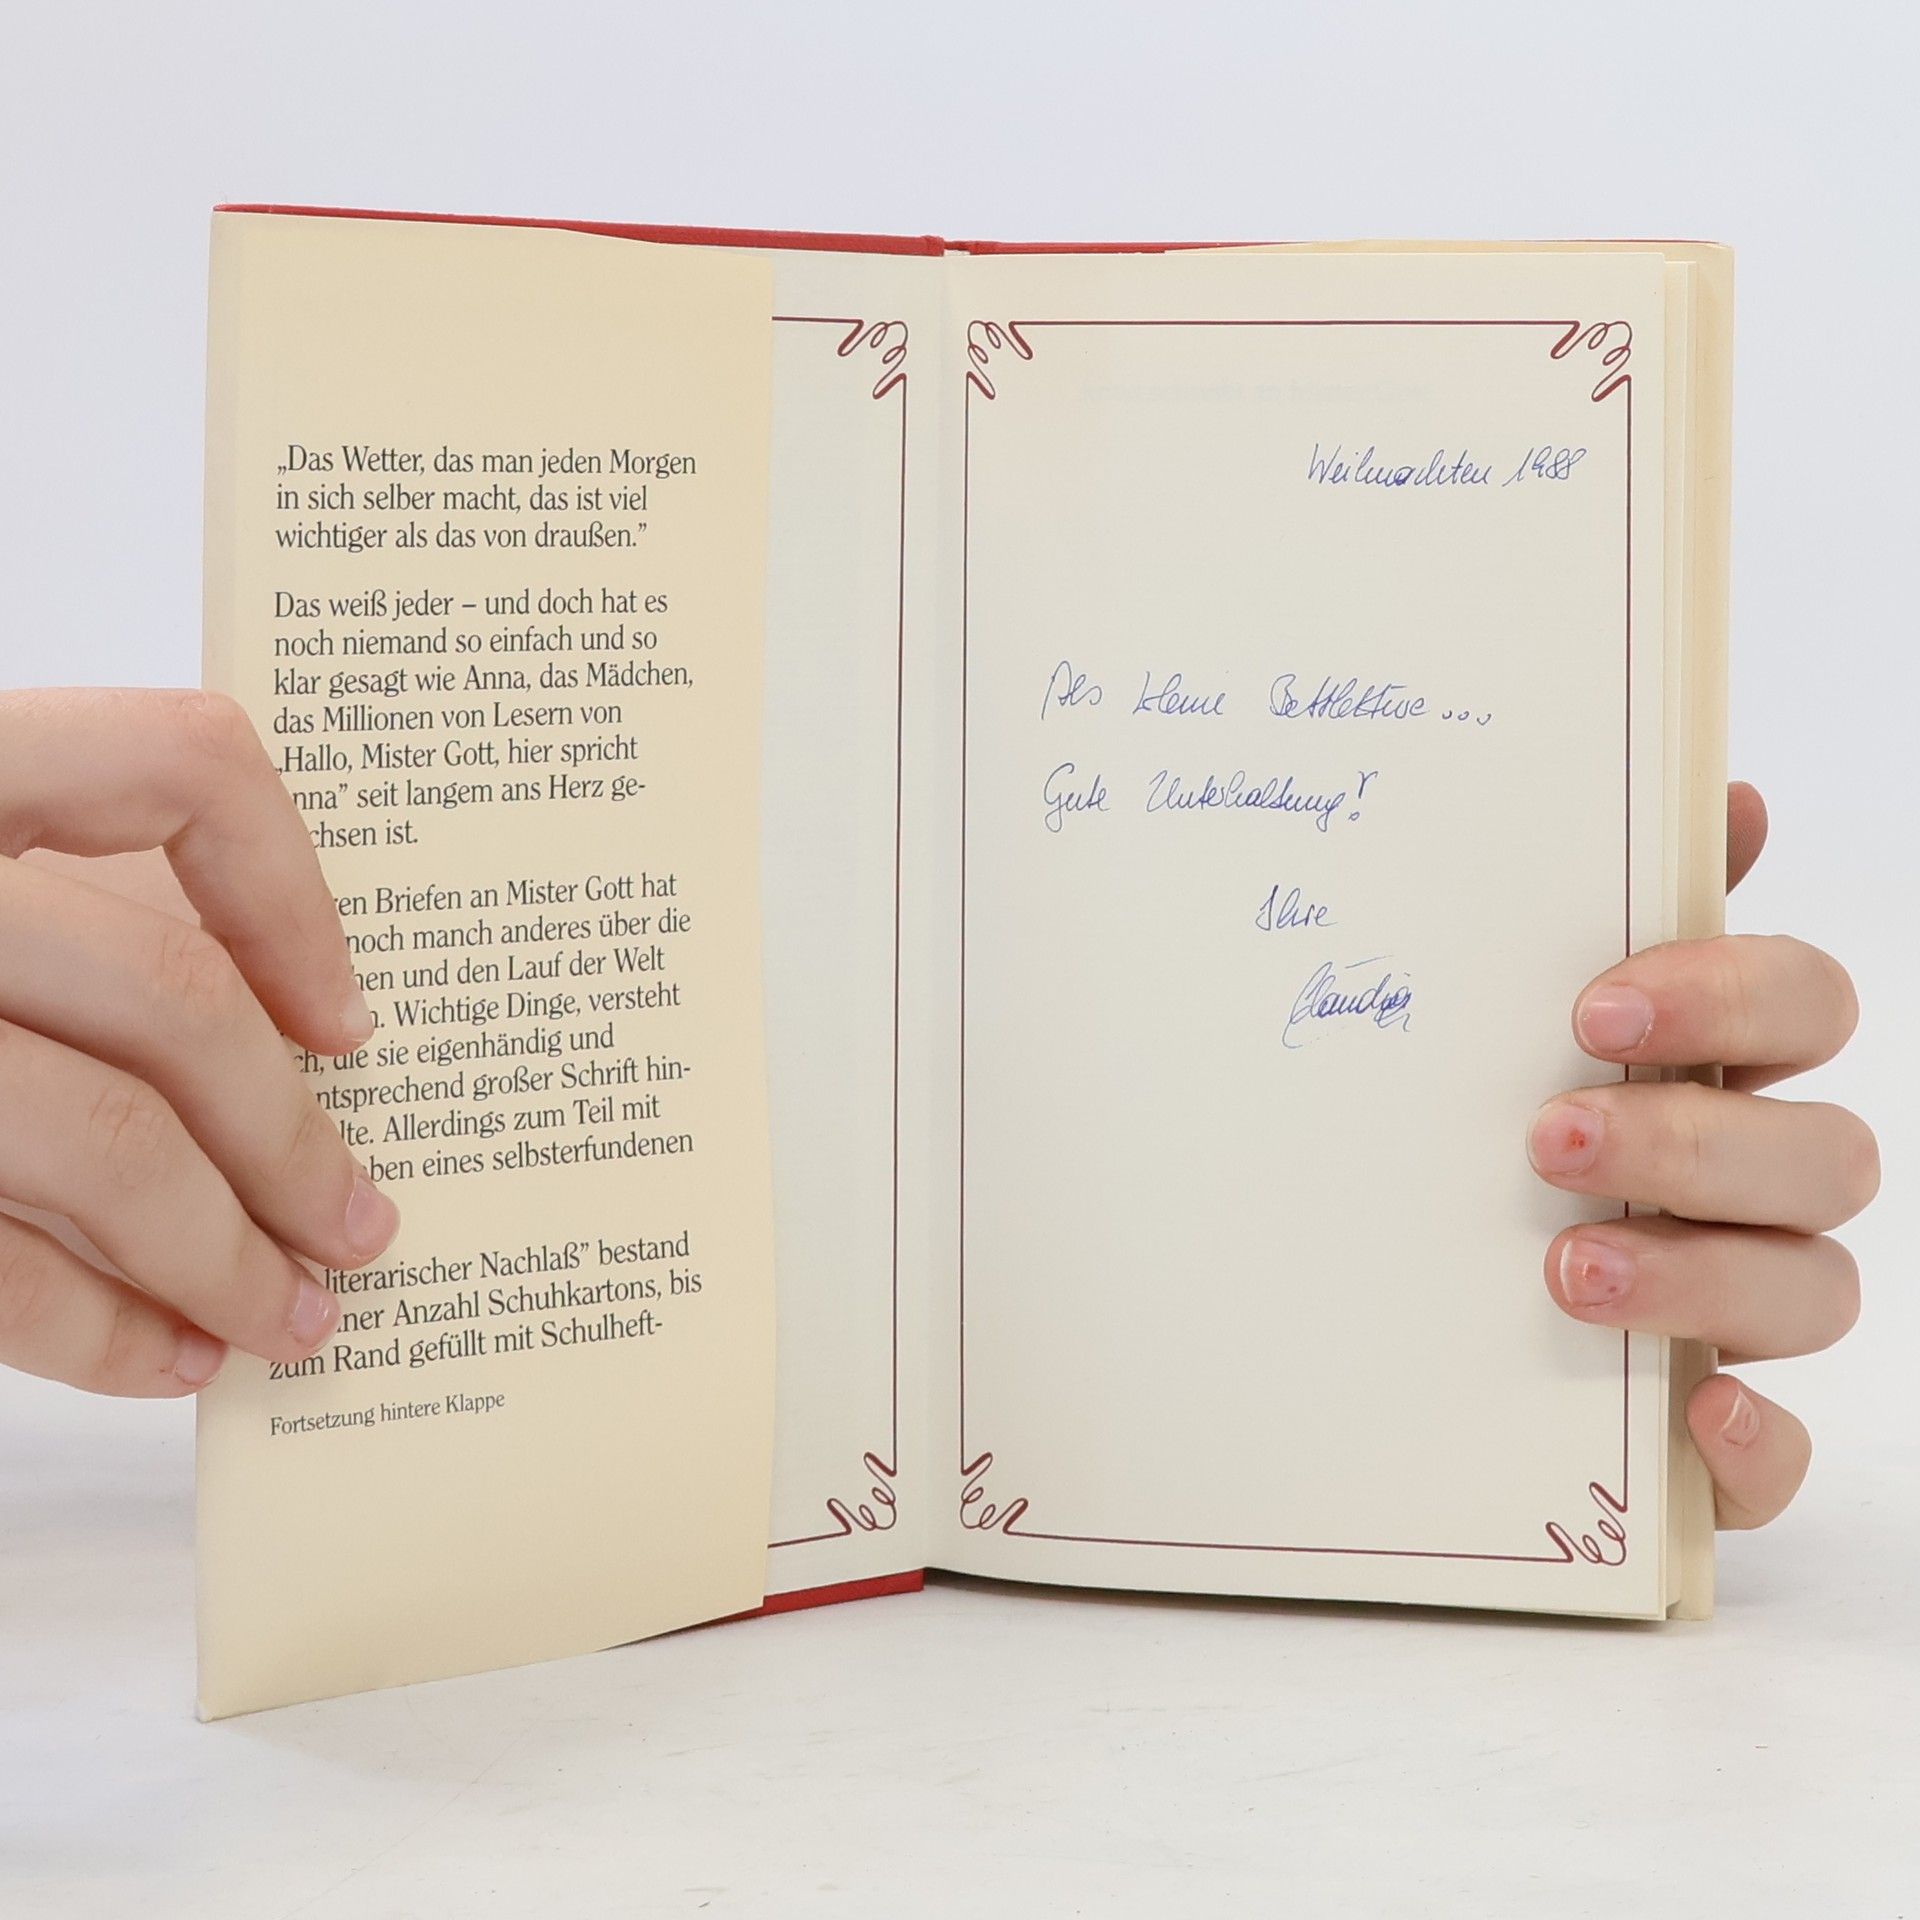 „Das Wetter, das man jeden Morgen
in sich selber macht, das ist viel
wichtiger als das von draußen.”
Das weiß jeder – und doch hat es
noch niemand so einfach und so
klar gesagt wie Anna, das Mädchen,
das Millionen von Lesern von
„Hallo, Mister Gott, hier spricht
nna” seit langem ans Herz ge-
chsen ist.
ren Briefen an Mister Gott hat
noch manch anderes über die
hen und den Lauf der Welt
n. Wichtige Dinge, versteht
ch, die sie eigenhändig und
ntsprechend großer Schrift hin-
lte. Allerdings zum Teil mit
ben eines selbsterfundenen
literarischer Nachlaß” bestand
ner Anzahl Schuhkartons, bis
zum Rand gefüllt mit Schulheft-
Fortsetzung hintere Klappe
Weihnachten 1988
Als kleine Bettlektüre...
Gute Unterhaltung!
Ihre
Claudia